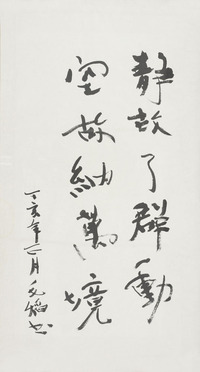 静故了群動
空故納萬境
丁亥年二月